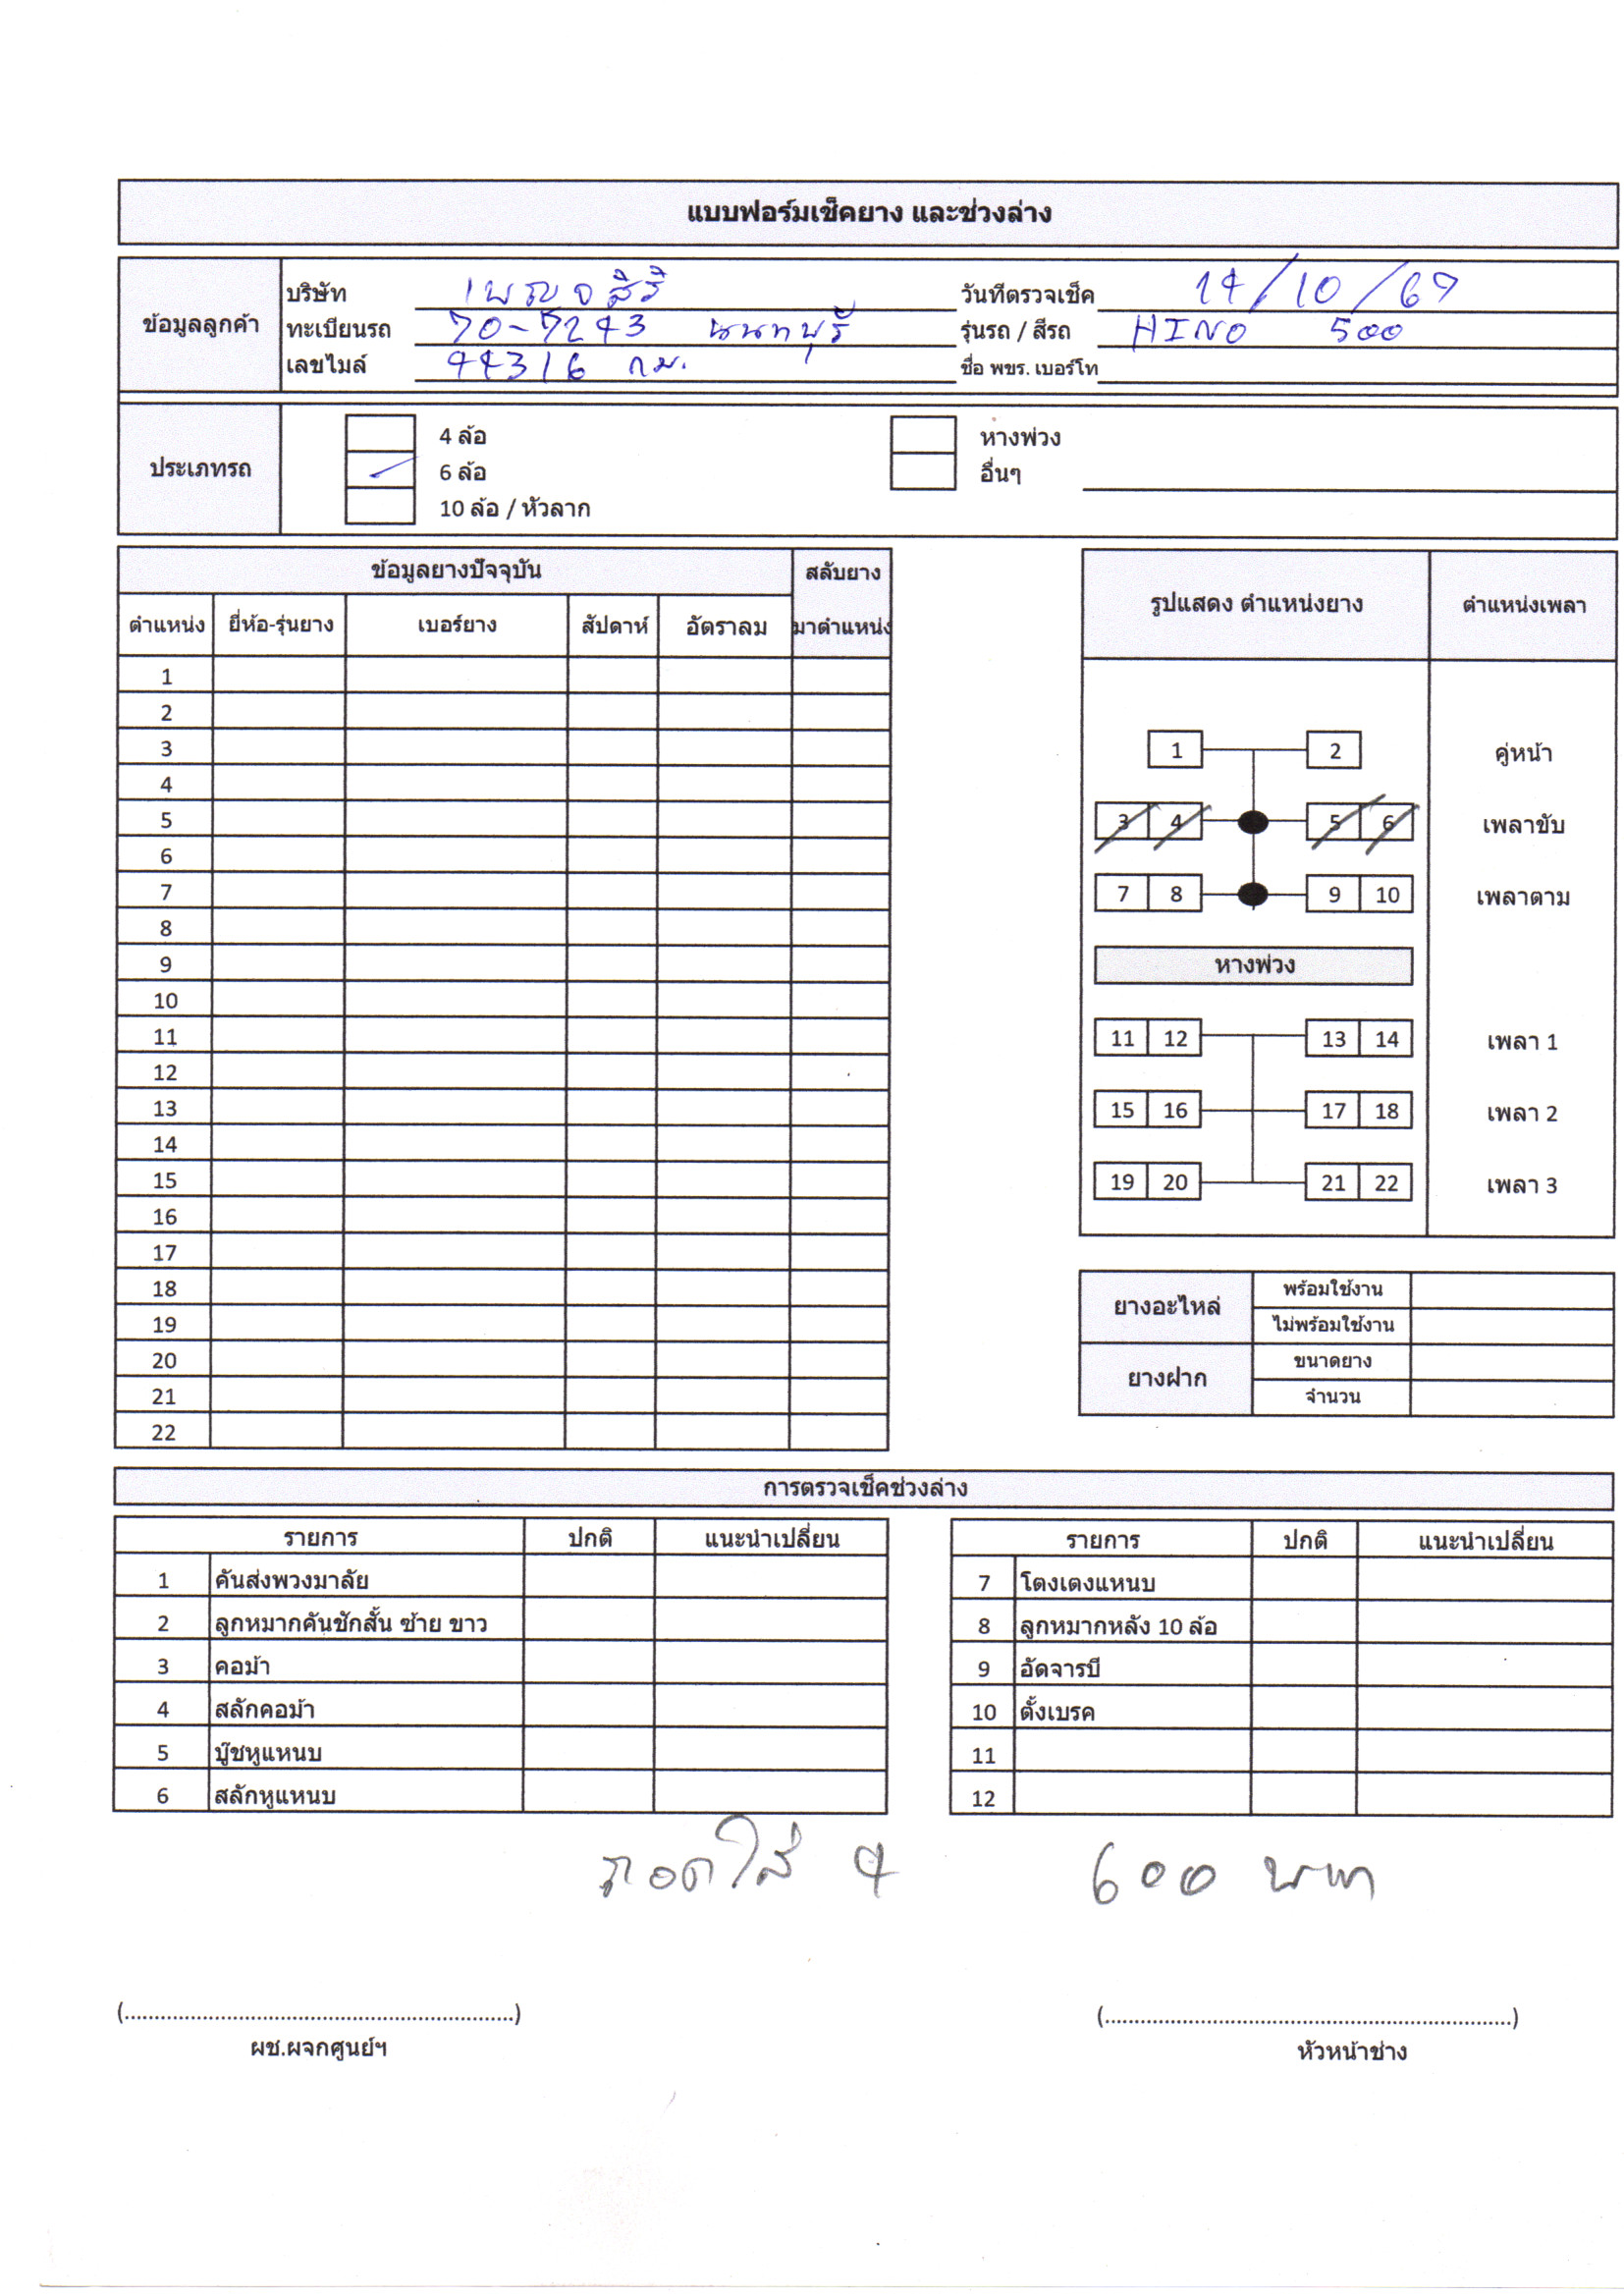 แบบฟอร์มเช็คยาง และช่วงล่าง
ข้อมูลลูกค้า
บริษัท เพญจสิริ วันที่ตรวจเช็ค 14/10/67
ทะเบียนรถ 70-7243 นนทบุรี รุ่นรถ / สีรถ HINO 500
เลขไมล์ 44316 กม. ชื่อ พขร. เบอร์โท
ประเภทรถ
4 ล้อ หางพ่วง
6 ล้อ อื่นๆ
10 ล้อ / หัวลาก
ข้อมูลยางปัจจุบัน สลับยาง
ตำแหน่ง ยี่ห้อ-รุ่นยาง เบอร์ยาง สัปดาห์ อัตราลม มาตำแหน่ง
1
2
3
4
5
6
7
8
9
10
11
12
13
14
15
16
17
18
19
20
21
22
รูปแสดง ตำแหน่งยาง ตำแหน่งเพลา
1 2 คู่หน้า
3 4 5 6 เพลาขับ
7 8 9 10 เพลาตาม
หางพ่วง
11 12 13 14 เพลา 1
15 16 17 18 เพลา 2
19 20 21 22 เพลา 3
ยางอะไหล่ พร้อมใช้งาน
ไม่พร้อมใช้งาน
ยางฝาก ขนาดยาง
จำนวน
การตรวจเช็คช่วงล่าง
รายการ ปกติ แนะนำเปลี่ยน
1 คันส่งพวงมาลัย
2 ลูกหมากคันชักสั้น ซ้าย ขาว
3 คอม้า
4 สลักคอม้า
5 บู๊ชหูแหนบ
6 สลักหูแหนบ
รายการ ปกติ แนะนำเปลี่ยน
7 โตงเตงแหนบ
8 ลูกหมากหลัง 10 ล้อ
9 อัดจารบี
10 ตั้งเบรค
11
12
ถอดใส่ 4 600 บาท
(..................................................................) (.....................................................................)
ผช.ผจกศูนย์ฯ หัวหน้าช่าง